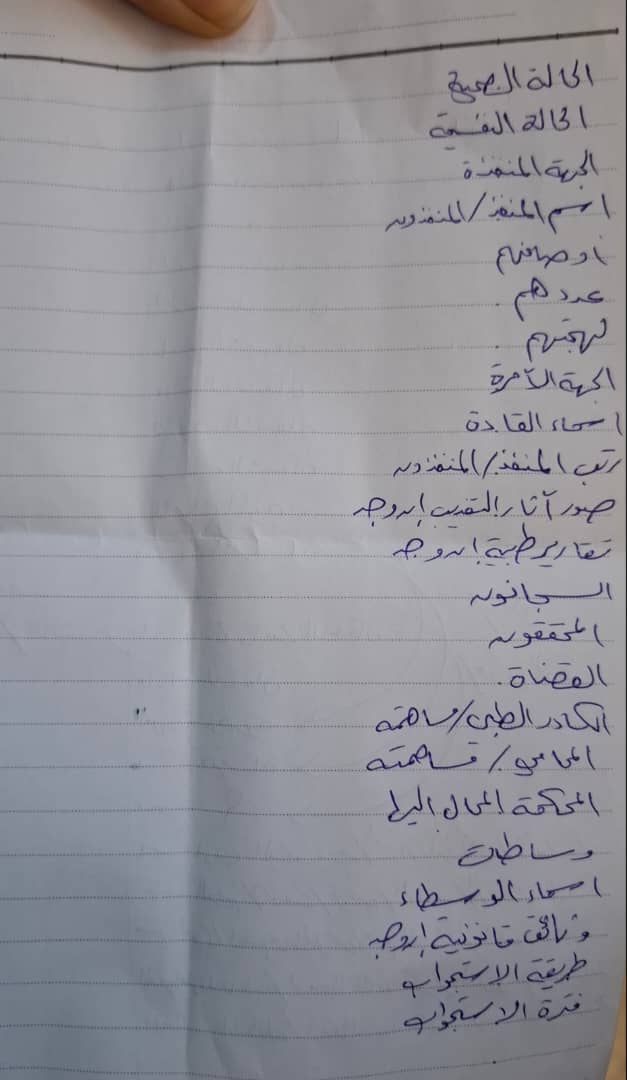 الحالة الصحية
الحالة النفسية
الجهة المنفذة
اسم المنفذ/المنفذون
أوصافهم
عددهم.
لهجتهم.
الجهة الآمرة
اسماء القادة
رتب المنفذ/المنفذون
صور آثار التعذيب إن وجد
تقارير طبية إن وجد
السجانون
المحققون
القضاة.
الكادر الطبي/مساهمة
المحامي/مساهمته
المحكمة المحال اليها
وساطات
اسماء الوسطاء
وثائق قانونية إن وجد
طريقة الاستجواب
فترة الاستجواب